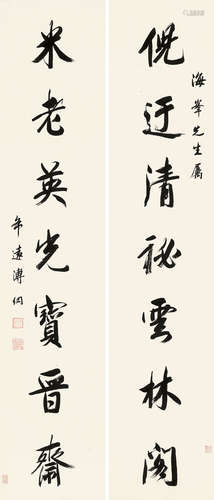 海峯先生屬
倪迂清祕雲林閣
米老英光寶晉齋
年遠溥伒